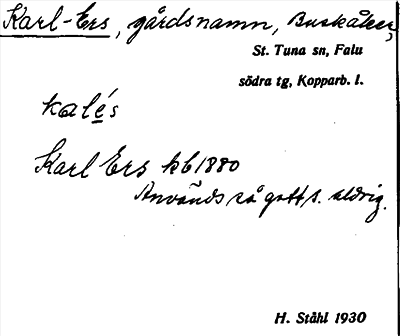 Karl-Ers, gårdsnamn, Buskåker,
St. Tuna sn, Falu
södra tg, Kopparb. l.
kalés
Karl Ers kb 1880
Används så gott s. aldrig.
H. Ståhl 1930